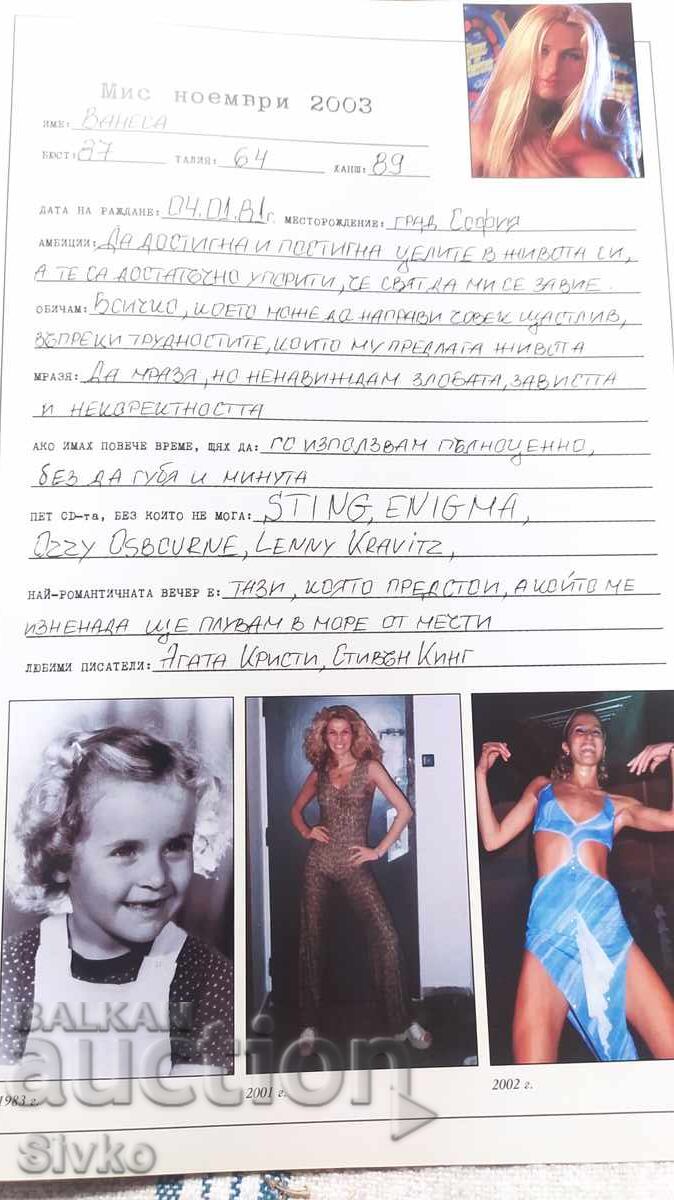 Мис ноември 2003
ИМЕ: ВАНЕСА
БЮСТ: 87 ТАЛИЯ: 64 ХАНШ: 89
ДАТА НА РАЖДАНЕ: 04.01.81г. МЕСТОРОЖДЕНИЕ: ГРАД СОФИЯ
АМБИЦИИ: ДА ДОСТИГНА И ПОСТИГНА ЦЕЛИТЕ В ЖИВОТА СИ,
А ТЕ СА ДОСТАТЪЧНО УПОРИТИ, ЧЕ СВЯТ ДА МИ СЕ ЗАВИЕ.
ОБИЧАМ: ВСИЧКО, КОЕТО МОЖЕ ДА НАПРАВИ ЧОВЕК ЩАСТЛИВ,
ВЪПРЕКИ ТРУДНОСТИТЕ, КОИТО МУ ПРЕДЛАГА ЖИВОТА
МРАЗЯ: ДА МРАЗЯ, НО НЕНАВИЖДАМ ЗЛОБАТА, ЗАВИСТТА
И НЕКОРЕКТНОСТТА
АКО ИМАХ ПОВЕЧЕ ВРЕМЕ, ЩЯХ ДА: ГО ИЗПОЛЗВАМ ПЪЛНОЦЕННО,
БЕЗ ДА ГУБЯ И МИНУТА
ПЕТ CD-та, БЕЗ КОИТО НЕ МОГА: STING, ENIGMA,
OZZY OSBOURNE, LENNY KRAVITZ,
НАЙ-РОМАНТИЧНАТА ВЕЧЕР Е: ТАЗИ, КОЯТО ПРЕДСТОИ, А КОЙТО МЕ
ИЗНЕНАДА ЩЕ ПЛУВАМ В МОРЕ ОТ МЕЧТИ
ЛЮБИМИ ПИСАТЕЛИ: АГАТА КРИСТИ, СТИВЪН КИНГ
1983 г.
2001 г.
2002 г.
BALKAN
auction
Sivko